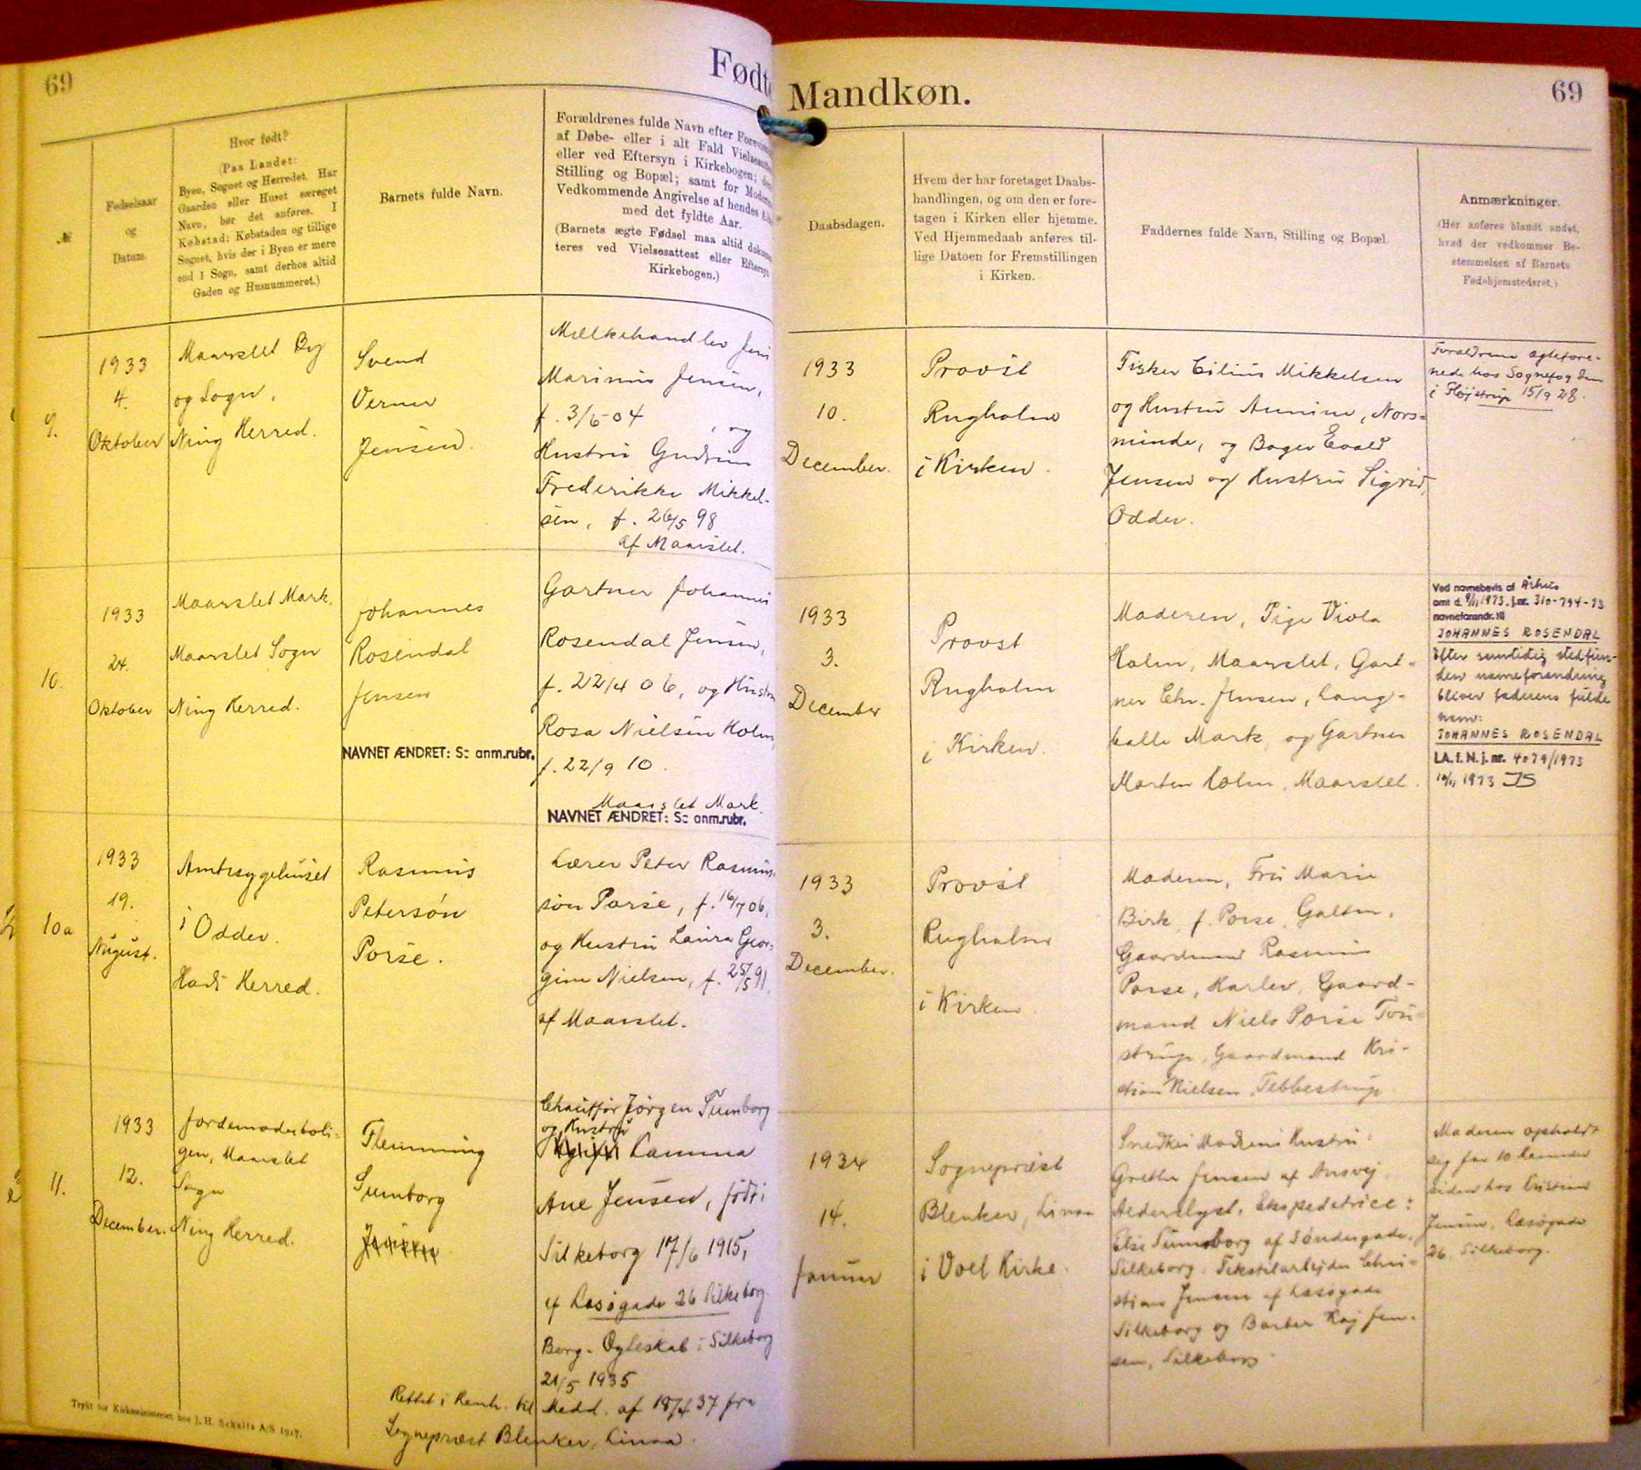 69
Født
Mandkøn.
69
№
Fødselsaar
og
Datum.
Hvor født?
(Paa Landet:
Byen, Sognet og Herredet. Har
Gaarden eller Huset særeget
Navn, bør det anføres. I
Købstad: Købstaden og tillige
Sognet, hvis der i Byen er mere
end 1 Sogn, samt derhos altid
Gaden og Husnummeret.)
Barnets fulde Navn.
Forældrenes fulde Navn efter
af Døbe- eller i alt Fald
eller ved Eftersyn i Kirkebogen;
Stilling og Bopæl; samt for
Vedkommende Angivelse af hendes
med det fyldte Aar.
(Barnets ægte Fødsel maa altid
teres ved Vielsesattest eller Eftersyn
Kirkebogen.)
Daabsdagen.
Hvem der har foretaget Daabs-
handlingen, og om den er fore-
tagen i Kirken eller hjemme.
Ved Hjemmedaab anføres til-
lige Datoen for Fremstillingen
i Kirken.
Faddernes fulde Navn, Stilling og Bopæl.
Anmærkninger.
(Her anføres blandt andet,
hvad der vedkommer Be-
stemmelsen af Barnets
Fødehjemstedsret.)
9.
1933
4.
Oktober
Maarslet By
og Sogn,
Ning Herred.
Svend
Verner
Jensen.
Mælkehandler Jens
Marinus Jensen,
f. 3/6-04, og
Hustru Gudrun
Frederikke Mikkel-
sen, f. 26/5 98
af Maarslet.
1933
10.
December.
Provst
Rugholm
i Kirken.
Fisker Cilius Mikkelsen
og Hustru Annine, Nors-
minde, og Bager Evald
Jensen og Hustru Sigrid,
Odder.
Forældrene ægtefore-
nede hos Sognefogden
i Fløjstrup 15/9 28.
10.
1933
24.
Oktober
Maarslet Mark,
Maarslet Sogn
Ning Herred.
Johannes
Rosendal
Jensen
NAVNET ÆNDRET: Se anm.rubr.
Gartner Johannes
Rosendal Jensen,
f. 22/4 06, og Hustru
Rosa Nielsen Holm,
f. 22/9 10.
Maarslet Mark
NAVNET ÆNDRET: Se anm.rubr.
1933
3.
December
Provst
Rugholm
i Kirken.
Moderen, Pige Viola
Holm, Maarslet, Gart-
ner Chr. Jensen, Lang-
balle Mark, og Gartner
Morten Holm, Maarslet.
Ved navnebevis af Århus
amt d. 9/11 1973. j.nr. 310-794-73
navneforandr. til
JOHANNES ROSENDAL
Efter samtidig stedfun-
den navneforandring
bliver faderens fulde
navn:
JOHANNES ROSENDAL
LA. f. N. j. nr. 4079/1973
1973
10a
1933
19.
August.
Amtssygehuset
i Odder.
Hads Herred.
Rasmus
Petersøn
Porse.
Lærer Peter Rasmus-
søn Porse, f. 16/7 06,
og Hustru Laura Geor-
gine Nielsen, f. 25/5 91,
af Maarslet.
1933
3.
December.
Provst
Rugholm
i Kirken
Moderen, Fru Marie
Birk, f. Porse, Galten,
Gaardmand Rasmus
Porse, Harlev, Gaard-
mand Niels Porse
strup, Gaardmand Kri-
stian Nielsen, Tebbestrup.
11.
1933
12.
December.
Jordemoderboli-
gen, Maarslet
Sogn
Ning Herred.
Flemming
Sumborg
Chauffør Jørgen Sumborg
og Hustru
Camma
Ane Jensen, født i
Silkeborg 17/6 1915,
af Læsøgade 26 Silkeborg.
Borg. Ægteskab i Silkeborg
21/5 1935
Rettet i Henh. til Medd. af 18/4 37 fra
Sognepræst Blenker, Linaa.
1934
14.
Januar
Sognepræst
Blenker, Linaa
i Voel Kirke.
Snedker Madsens Hustru
Grethe Jensen af Ansvej
Alderslyst. Ekspeditrice:
Else Sumborg af Søndergade,
Silkeborg. Tekstilarbejder Chri-
stian Jensen af Læsøgade
Silkeborg og Barber Kaj Jen-
sen, Silkeborg.
Moderen opholdt
sig for 10 Maaneder
siden hos Kristian
Jensen, Læsøgade
26. Silkeborg.
Trykt for Kirkeministeriet hos J. H. Schultz A/S 1917.